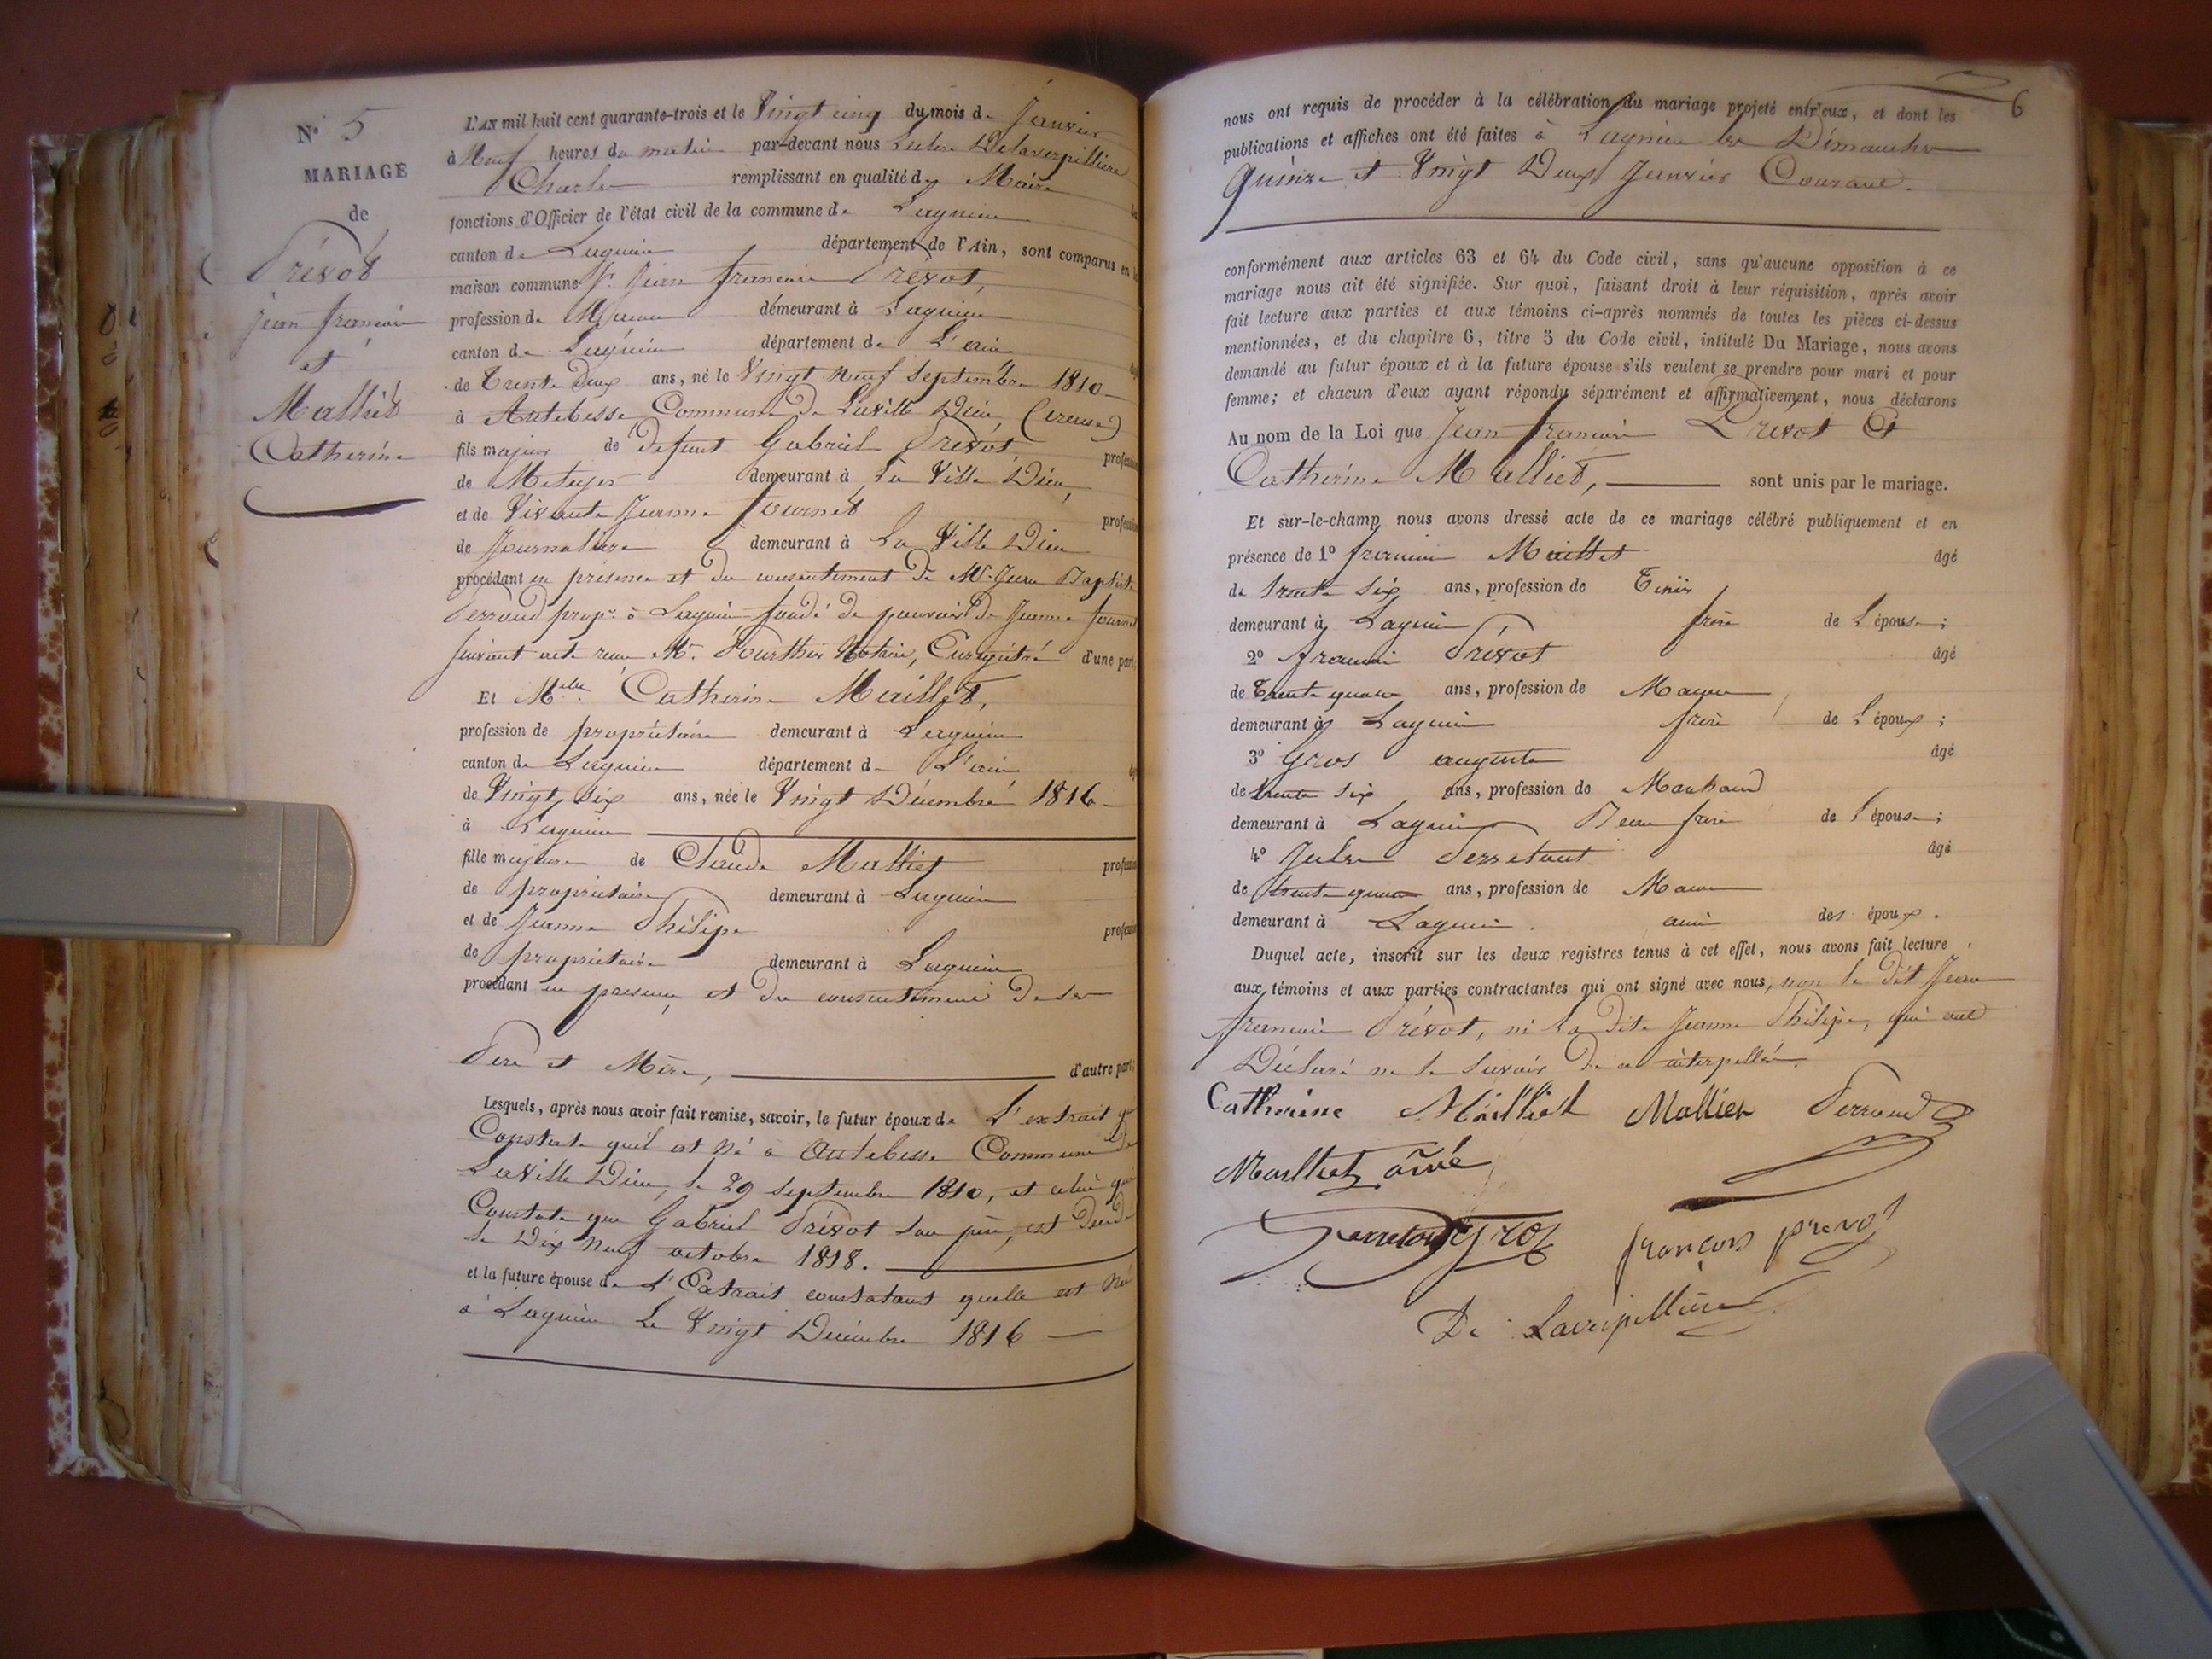 N° 5
MARIAGE
de
Prévôt
jean françois
et
Malliet
Catherine
L'AN mil huit cent quarante-trois et le Vingt cinq du mois de Janvier
à Neuf heures du matin par-devant nous Delaverpilliere
Charles remplissant en qualité de Maire
fonctions d'Officier de l'état civil de la commune de Lagnieu
canton de Lagnieu département de l'Ain, sont comparus en la
maison commune Sr. Jean françois Prévot,
profession de Maçon demeurant à Lagnieu
canton de Lagnieu département de L'ain
de Trente deux ans, né le Vingt Neuf Septembre 1810
à Autebesse Commune de Laville Dieu (creuse)
fils majeur de defunt Gabriel Prevôt profession
de Metayer demeurant à La Ville Dieu,
et de Vivante Jeanne fournet profession
de Journalière demeurant à La Ville Dieu
procédant en présence et du consentement de Mr. Jean Baptiste
Perroud propre. à Lagnieu fondé de pouvoir de Jeanne fournet
suivant acte reçu Me. Notaire, Enregistré d'une part;
Et Melle. Catherine Maillet,
profession de propriétaire demeurant à Lagnieu
canton de Lagnieu département de L'ain
de Vingt Six ans, née le Vingt Décembre 1816
à Lagnieu
fille majeure de Claude Malliet profession
de propriétaire demeurant à Lagnieu
et de Jeanne Philipe profession
de propriétaire demeurant à Lagnieu
procédant en presence et du consentement de ses
Pere et Mère, d'autre part;
Lesquels, après nous avoir fait remise, savoir, le futur époux de L'extrait qui
Constate qu'il est né à Autebesse Commune de
Laville Dieu, le 29 Septembre 1810, et celui qui
Constate que Gabriel Prévot son père, est décédé
le Dix Neuf octobre 1818.
et la future épouse de L'Extrait constatant quelle est Née
à Lagnieu Le Vingt Décembre 1816
6
nous ont requis de procéder à la célébration du mariage projeté entr'eux, et dont les
publications et affiches ont été faites à Lagnieu les Dimanches
Quinze et Vingt Deux Janvier Courant.
conformément aux articles 63 et 64 du Code civil, sans qu'aucune opposition à ce
mariage nous ait été signifiée. Sur quoi, faisant droit à leur réquisition, après avoir
fait lecture aux parties et aux témoins ci-après nommés de toutes les pièces ci-dessus
mentionnées, et du chapitre 6, titre 5 du Code civil, intitulé Du Mariage, nous avons
demandé au futur époux et à la future épouse s'ils veulent se prendre pour mari et pour
femme; et chacun d'eux ayant répondu séparément et affirmativement, nous déclarons
Au nom de la Loi que Jean françois Prévot Et
Catherine Malliet, sont unis par le mariage.
Et sur-le-champ nous avons dressé acte de ce mariage célébré publiquement et en
présence de 1° françois Maillet âgé
de trente Six ans, profession de
demeurant à Lagnieu frère de L'épouse;
2° françois Prévot âgé
de Trente quatre ans, profession de Maçon
demeurant à Lagnieu frère de L'époux;
3° Gros auguste âgé
de trente Six ans, profession de Marchand
demeurant à Lagnieu Beau frère de l'épouse;
4° Jules Perretant âgé
de trente quatre ans, profession de Maçon
demeurant à Lagnieu. ami des époux.
Duquel acte, inscrit sur les deux registres tenus à cet effet, nous avons fait lecture
aux témoins et aux parties contractantes qui ont signé avec nous, non le dit Jean
françois Prévot, ni La dite Jeanne Philipe, qui ont
Déclaré ne le savoir de ce interpellés.
Catherine Mailliet Mallier Perroud
Mailliet aîné
gros françois prevot
De Laverpilliere